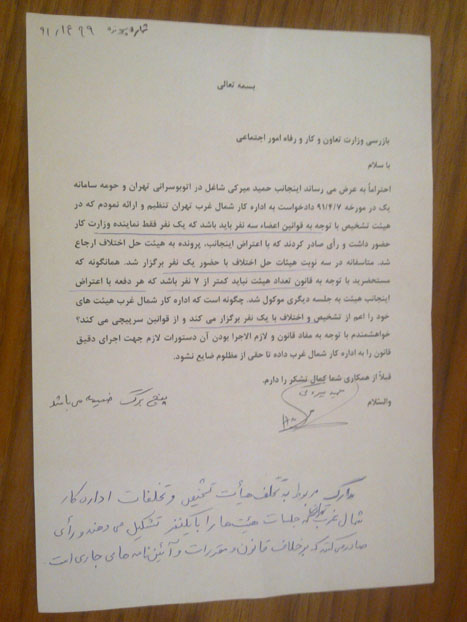 شماره پرونده ۹۱/۱۶۹۹
بسمه تعالی
بازرسی وزارت تعاون و کار و رفاه امور اجتماعی
با سلام
احتراماً به عرض می رساند اینجانب حمید میرکی شاغل در اتوبوسرانی تهران و حومه سامانه
یک در مورخه ۹۱/۴/۷ دادخواست به اداره کار شمال غرب تهران تنظیم و ارائه نمودم که در
هیئت تشخیص با توجه به قوانین اعضاء سه نفر باید باشد که یک نفر فقط نماینده وزارت کار
حضور داشت و رأی صادر کردند که با اعتراض اینجانب، پرونده به هیئت حل اختلاف ارجاع
شد. متاسفانه در سه نوبت هیئات حل اختلاف با حضور یک نفر برگزار شد. همانگونه که
مستحضرید با توجه به قانون تعداد هیئت نباید کمتر از ۷ نفر باشد که هر دفعه با اعتراض
اینجانب هیئت به جلسه دیگری موکول شد. چگونه است که اداره کار شمال غرب هیئت های
خود را اعم از تشخیص و اختلاف با یک نفر برگزار می کند و از قوانین سرپیچی می کند؟
خواهشمندم با توجه به مفاد قانون و لازم الاجرا بودن آن دستورات لازم جهت اجرای دقیق
قانون را به اداره کار شمال غرب داده تا حقی از مظلوم ضایع نشود.
قبلاً از همکاری شما کمال تشکر را دارم.
والسلام
پنج برگ ضمیمه می باشد
مدارک مربوط به تخلف هیأت تشخیص و تخلفات اداره کار
شمال غرب تهران که جلسات هیئت ها را با یکنفر تشکیل می دهند و رأی
صادر می کنند که برخلاف قانون و مقررات و آئین نامه های جاری است.